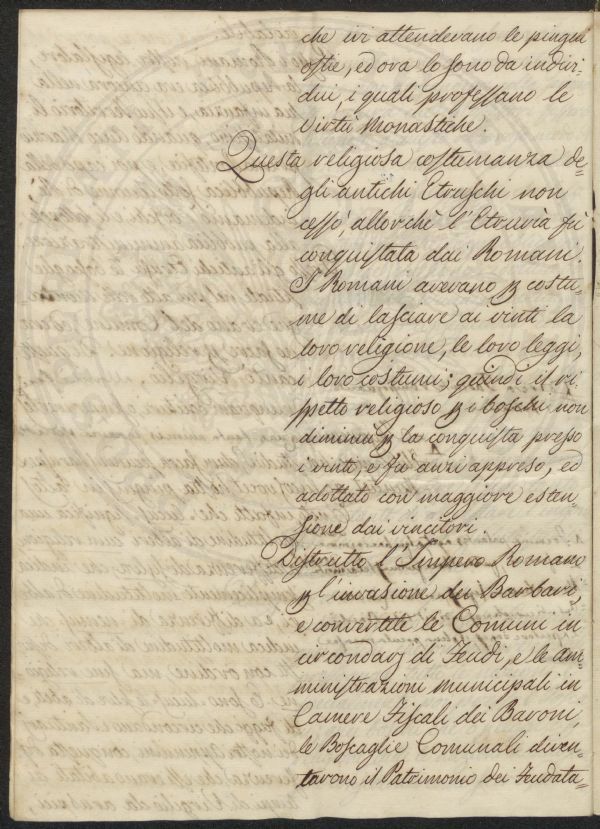 che ivi attendevano le pingui
ostie, ed ora lo sono da indivi-
dui, i quali professano le
virtù Monastiche.
Questa religiosa costumanza de=
gli antichi Etruschi non
cessò, allorchè l'Etruria fù
conquistata dai Romani.
I Romani avevano p costu=
me di lasciare ai vinti la
loro religione, le loro leggi,
i loro costumi; quindi il ri=
spetto religioso p i boschi non
diminuì p la conquista presso
i vinti, e fù anzi appreso, ed
adottato con maggiore esten=
sione dai vincitori.
Distrutto l'Impero Romano
p l'invasione dei Barbari,
e convertite le Comuni in
circondarj di Feudi, e le am=
ministrazioni municipali in
Camere Fiscali dei Baroni,
le Boscaglie Comunali diven=
tarono il Patrimonio dei Feudata=